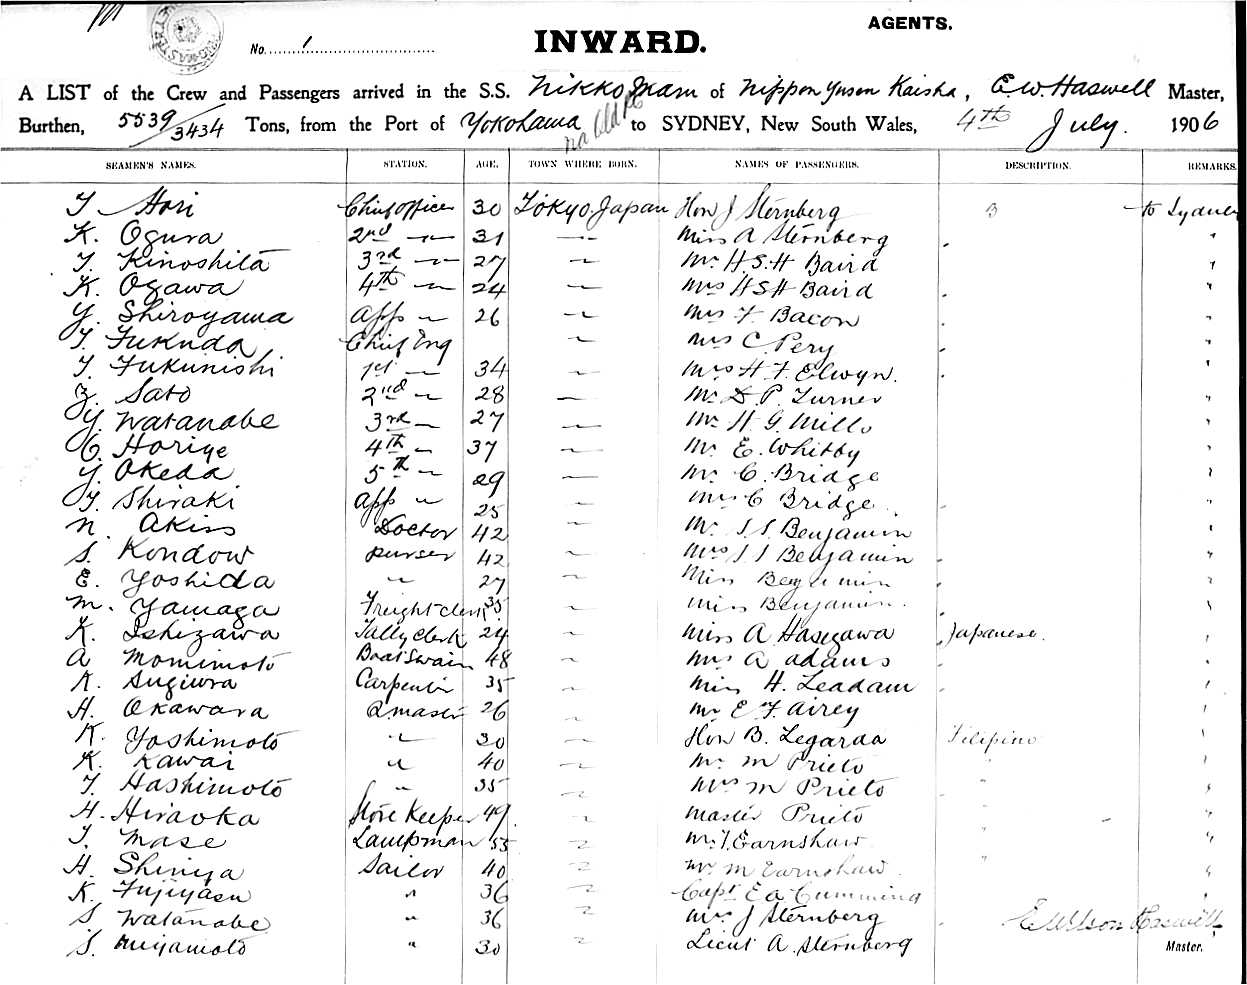 AGENTS.
No. 1
INWARD.
A LIST of the Crew and Passengers arrived in the S.S. Nikko Maru of Nippon Yusen Kaisha, E. W. Haswell Master,
Burthen, 5539/3434 Tons, from the Port of Yokohama via to SYDNEY, New South Wales, 4th July. 1906
SEAMEN'S NAMES. STATION. AGE. TOWN WHERE BORN. NAMES OF PASSENGERS. DESCRIPTION. REMARKS.
T Hori Chief officer 30 Tokyo. Japan Hon J Sternberg B to Sydney
K. Ogura 2nd " 31 " Miss A Sternberg "
T. Kinoshita 3rd " 27 " Mr H. S. H Baird "
K. Ogawa 4th " 24 " Mrs H S H Baird "
Y. Shiroyama App " 26 " Mrs F Bacon "
T. Fukuda Chief Eng " Mrs C. Pery "
T. Fukunishi 1st " 34 " Mrs H F. Elwyn. "
Z. Sato 2nd " 28 " Mr D. P. Turner "
Y. Watanabe 3rd " 27 " Mr H G. Mills "
C. Horiye 4th " 37 " Mr E. Whitby "
Y. Okeda 5th " 29 " Mr C. Bridge "
T. Shiraki App " 25 " Mrs C Bridge "
N. Doctor 42 " Mr S. S. Benjamin "
S. Kondow purser 42 " Mrs S S Benjamin "
E. Yoshida " 27 " Miss Benjamin "
M. Yamaga Freight clerk 35 " Miss Benjamin. "
K. Ishizawa Tally clerk 24 " Miss A Hasegawa Japanese. "
A Momimoto Boatswain 48 " Mrs A Adams "
K. Sugiura Carpenter 35 " Miss H. Leadam "
H. Okawara Q. master 26 " Mr E F. Airey "
K. Yoshimoto " 30 " Hon B. Legarda Filipino "
K. Kawai " 40 " Mr M Prieto " "
T. Hashimoto " 35 " Mrs M Prieto " "
H. Hiraoka Store Keeper 49 " Master Prieto " "
T. Mase Lampman 55 " Mr T. Earnshaw " "
H. Shinya Sailor 40 " Mr M Earnshaw " "
K. Fujiyasu " 36 " Capt E A Cumming "
S. Watanabe " 36 " Mrs J Sternberg E Wilson Haswell
S. Miyamoto " 30 " Lieut A. Sternberg Master.